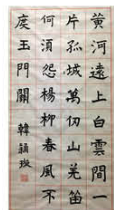 黄河遠上白雲間一
片孤城萬仞山羌笛
何須怨楊柳春風不
度玉門關 韓